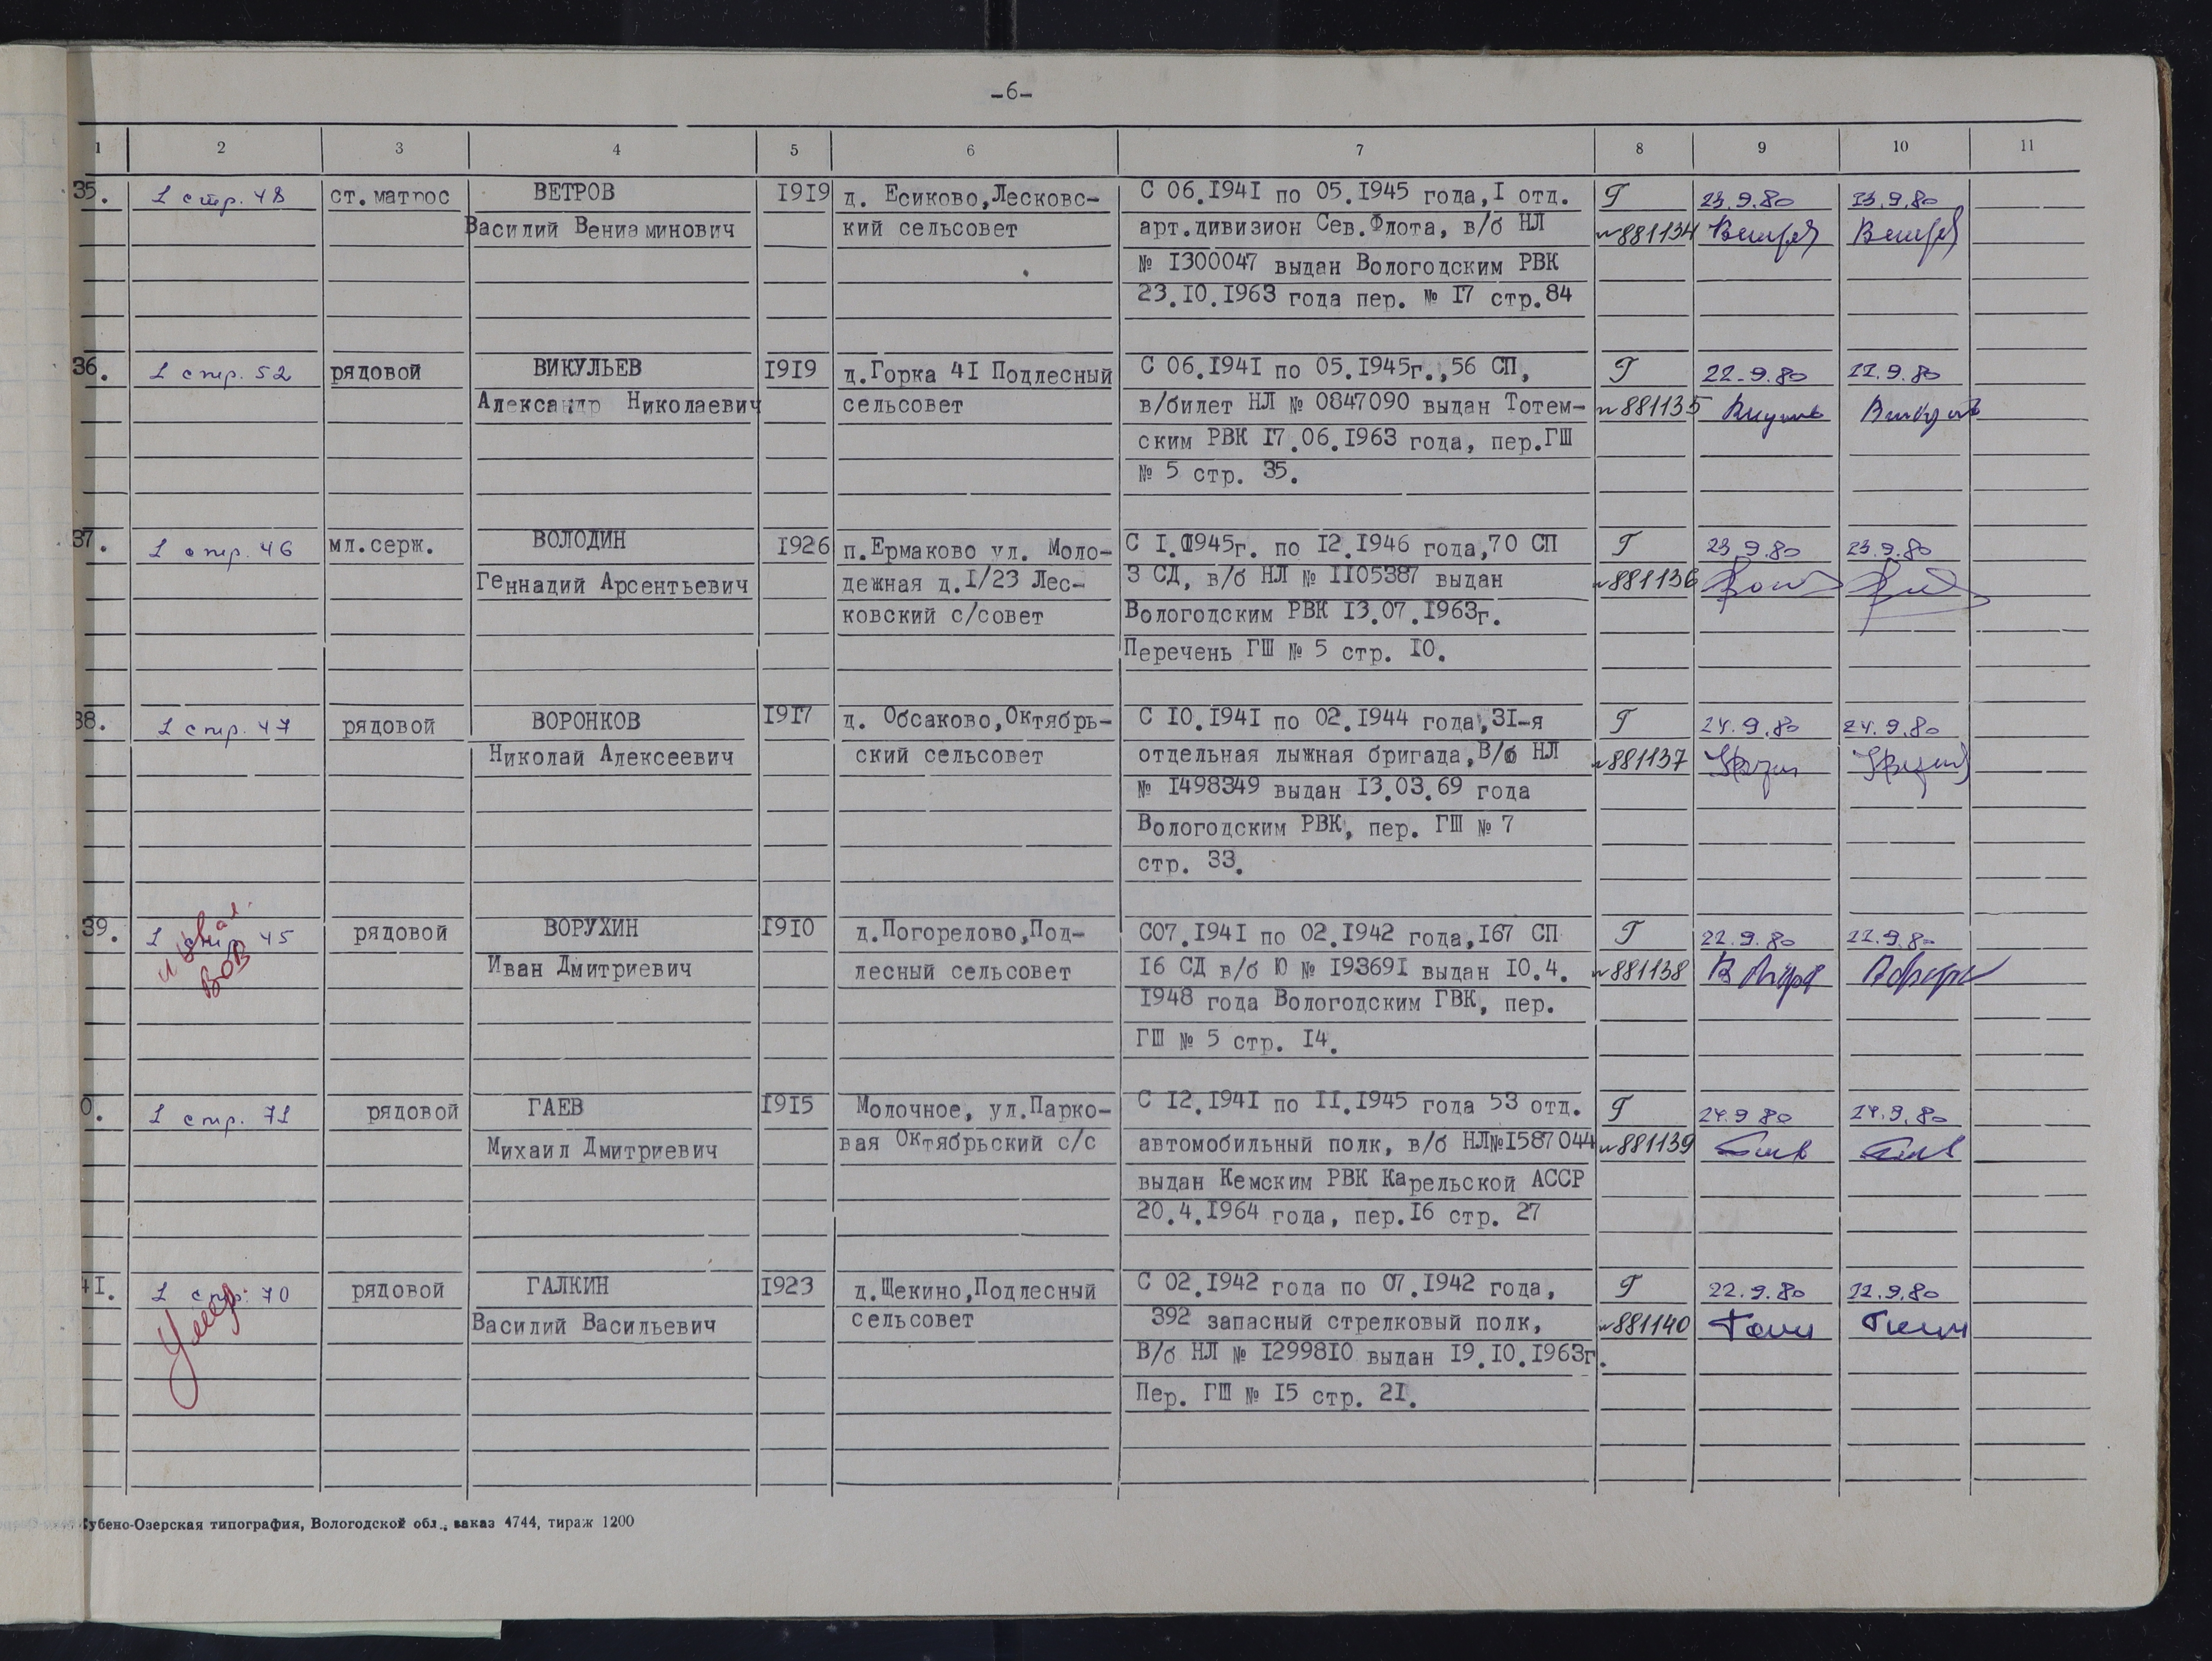 -6-
1 2 3 4 5 6 7 8 9 10 11
35. 1 стр. 48 ст.матрос ВЕТРОВ 1919 д. Есиково,Лесковс- С 06.1941 по 05.1945 года,1 отд. Г 23.9.80 23.9.80
Василий Вениаминович кий сельсовет арт.дивизион Сев.Флота, в/б НЛ №881134
№ 1300047 выдан Вологодским РВК
23.10.1963 года пер. № 17 стр.84
36. 1 стр. 52 рядовой ВИКУЛЬЕВ 1919 д.Горка 41 Подлесный С 06.1941 по 05.1945г.,56 СП, Г 22.9.80 22.9.80
Александр Николаевич сельсовет в/билет НЛ № 0847090 выдан Тотем- №881135
ским РВК 17.06.1963 года, пер.ГШ
№ 5 стр. 35.
37. 1 стр. 46 мл.серж. ВОЛОДИН 1926 п.Ермаково ул. Моло- С 1.1945г. по 12.1946 года,70 СП Г 23.9.80 23.9.80
Геннадий Арсентьевич дежная д.1/23 Лес- 3 СД, в/б НЛ № 1105387 выдан №881136
ковский с/совет Вологодским РВК 13.07.1963г.
Перечень ГШ № 5 стр. 10.
38. 1 стр. 47 рядовой ВОРОНКОВ 1917 д. Обсаково,Октябрь- С 10.1941 по 02.1944 года,31-я Г 24.9.80 24.9.80
Николай Алексеевич ский сельсовет отдельная лыжная бригада,В/б НЛ №881137
№ 1498349 выдан 13.03.69 года
Вологодским РВК, пер. ГШ № 7
стр. 33.
39. 1 стр. 45 рядовой ВОРУХИН 1910 д.Погорелово,Под- С07.1941 по 02.1942 года,167 СП Г 22.9.80 22.9.80
инвал.
ВОВ
Иван Дмитриевич лесный сельсовет 16 СД в/б Ю № 193691 выдан 10.4. №881138
1948 года Вологодским ГВК, пер.
ГШ № 5 стр. 14.
0. 1 стр. 71 рядовой ГАЕВ 1915 Молочное, ул.Парко- С 12.1941 по 11.1945 года 53 отд. Г 24.9.80 24.9.80
Михаил Дмитриевич вая Октябрьский с/с автомобильный полк, в/б НЛ№1587044 №881139
выдан Кемским РВК Карельской АССР
20.4.1964 года, пер.16 стр. 27
41. 1 стр. 70 рядовой ГАЛКИН 1923 д.Щекино,Подлесный С 02.1942 года по 07.1942 года, Г 22.9.80 22.9.80
Умер
Василий Васильевич сельсовет 392 запасный стрелковый полк, №881140
В/б НЛ № 1299810 выдан 19.10.1963г.
Пер. ГШ № 15 стр. 21.
Кубено-Озерская типография, Вологодской обл., заказ 4744, тираж 1200